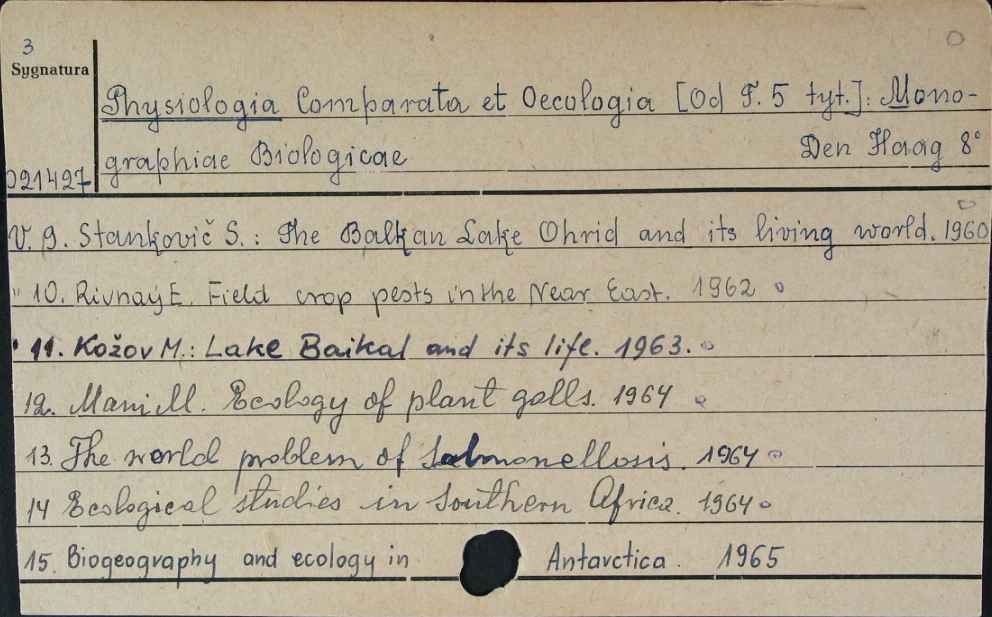 3
Sygnatura
Physiologia Comparata et Oecologia [Od T. 5 tyt.]: Mono-
graphiae Biologicae Den Haag 8°
021427
V. 9. Stankovič S.: The Balkan Lake Ohrid and its living world. 1960
" 10. Rivnay E. Field crop pests in the Near East. 1962
" 11. Kožov M.: Lake Baikal and its life. 1963.
12. Mani M. Ecology of plant galls. 1964
13. The world problem of Salmonellosis. 1964
14 Ecological studies in Southern Africa. 1964
15. Biogeography and ecology in Antarctica. 1965